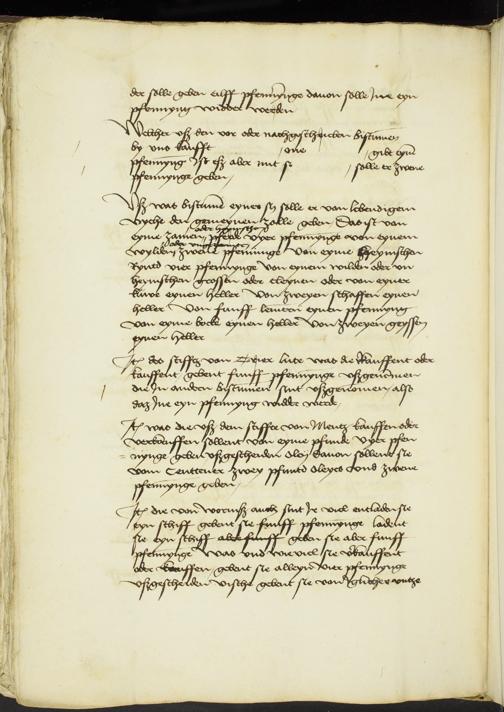 der solle geben eilff pfennynge dauon solle Jme eyn
pfennyng widder werden
Welcher vß den vor oder nachgeschrieben Bistumen
by vns kaufft one gibt eyn
pfennyng Jst eß aber mit solle er zwene
pfennynge geben
Vß was bistume eyner sy solle er von lebendigem
vyehe den gemeynen zolle geben Das ist von
oder heymschen
eyme zamen pferde vyer pfennynge von eynem
wylden zwene pfennynge Von eyme heymschen
Rynd vier pfennynge von eynem wilden oder
heymschen grossen oder cleynen oder von eyner
kuwe eynen heller Von zweyen schaffen eynen
heller Von funff lemern eynen pfennyng
von eyme bocke eynen heller Von zweyen geyssen
eynen heller
Jt des stiffts von Trier lute was die kauffent oder
kauffent gebent funff pfennynge vßgenomen
die in andern bistumen sint vßgenomen also
daz Jne eyn pfennyng widder werde
Jt was die vß dem stiffte von Mentz kauffen oder
verkeuffen sollent von eyme pfunde vyer pfen
nynge geben vßgescheiden oley dauon sollent sie
vom Centtener zwey pfundt oleyes vnd zwene
pfennynge geben
Jt die von wormß auch sint Jr viel entladen sie
eyn schiff gebent sie funff pfennynge ladent
sie eyn schiff aber funff geben sie aber funff
pfennynge was vnd wieviel sie verkauffent
oder kauffen gebent sie alleyn vier pfennynge
vßgescheiden vische gebent sie von yglicher